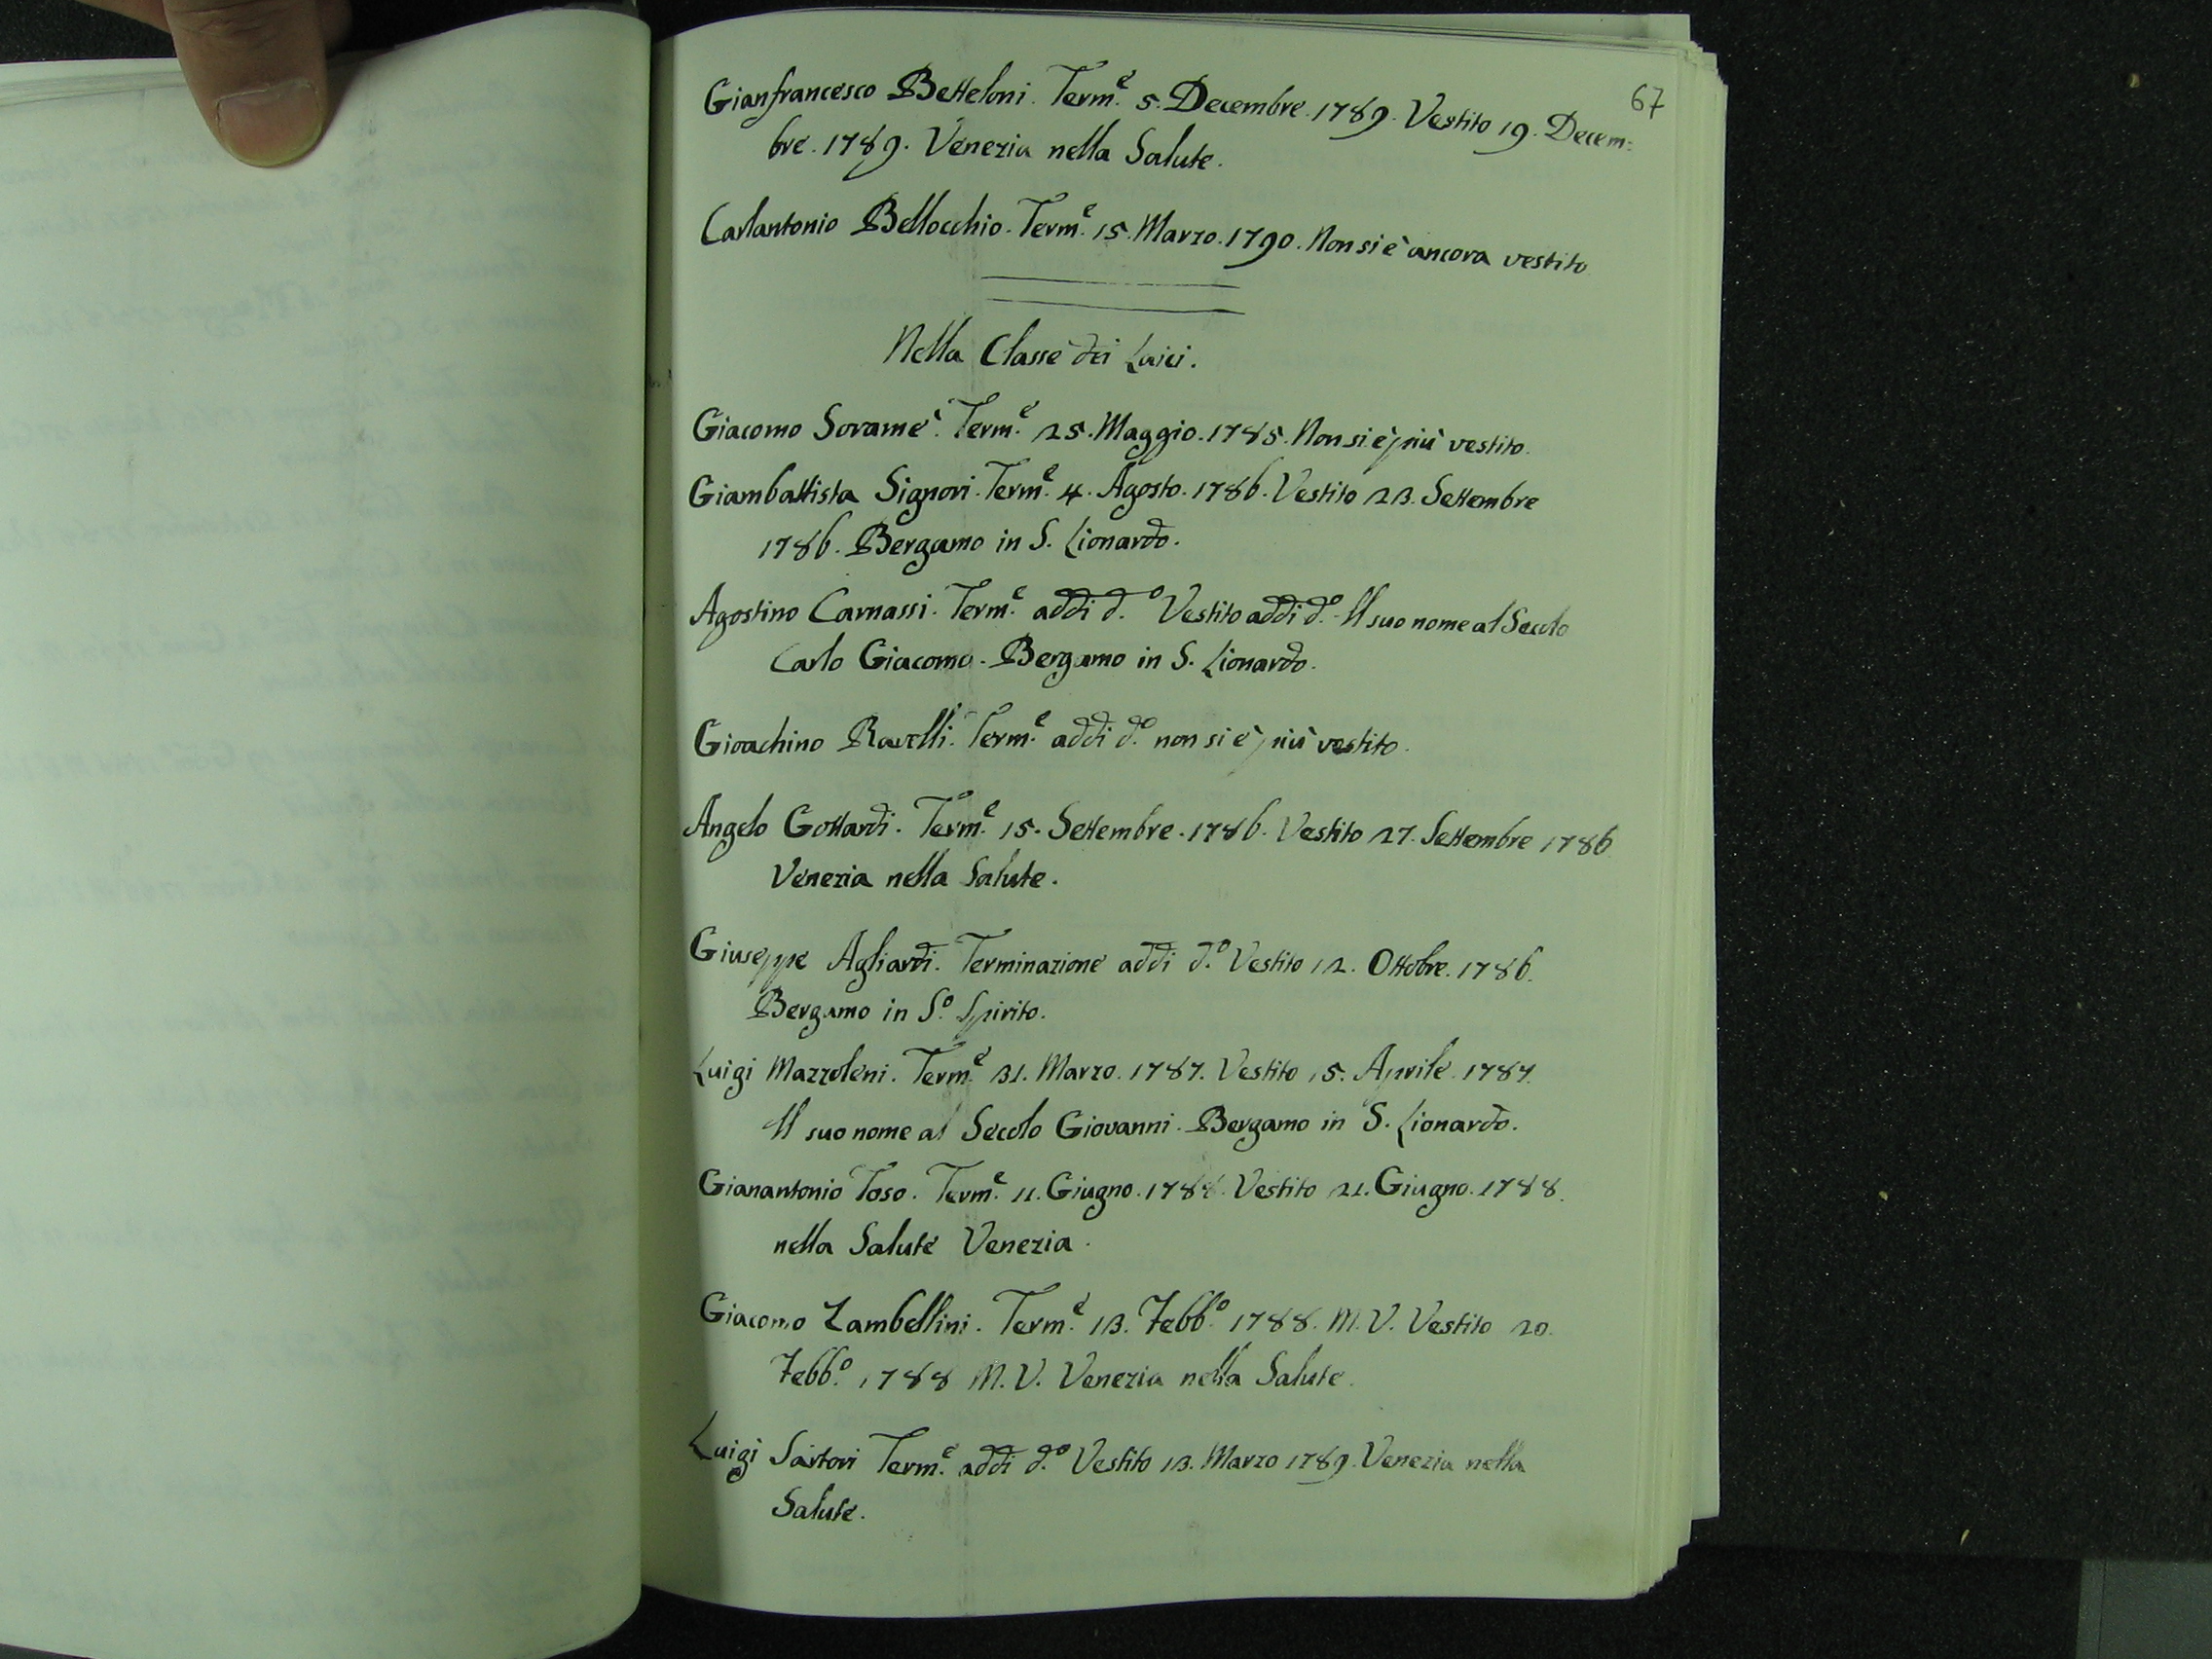 67
Gianfrancesco Betteloni. Term.e 5. Decembre. 1789. Vestito 19. Decem:
bre. 1789. Venezia nella Salute.
Carlantonio Bellocchio. Term.e 15. Marzo. 1790. Non si è ancora vestito
Nella Classe dei Laici.
Giacomo Soramè. Term.e 25. Maggio. 1785. Non si è più vestito.
Giambattista Signori. Term.e 4. Agosto. 1786. Vestito 23. Settembre
1786. Bergamo in S. Lionardo.
Agostino Carnassi. Term.e addi d.o Vestito addi d.o Il suo nome al Secolo
Carlo Giacomo. Bergamo in S. Lionardo.
Gioachino Ravelli. Term.e addi d.o non si è più vestito.
Angelo Gottardi. Term.e 15. Settembre. 1786. Vestito 27. Settembre 1786
Venezia nella Salute.
Giuseppe Agliardi. Terminazione addi d.o Vestito 12. Ottobre. 1786.
Bergamo in S.o Spirito.
Luigi Mazzoleni. Term.e 31. Marzo. 1787. Vestito 15. Aprile. 1787.
Il suo nome al Secolo Giovanni. Bergamo in S. Lionardo.
Gianantonio Toso. Term.e 11. Giugno. 1788. Vestito 21. Giugno. 1788.
nella Salute Venezia.
Giacomo Zambellini. Term.e 13. Febb.o 1788. M.V. Vestito 20.
Febb.o 1788 M.V. Venezia nella Salute.
Luigi Sartori Term.e addi d.o Vestito 13. Marzo 1789. Venezia nella
Salute.